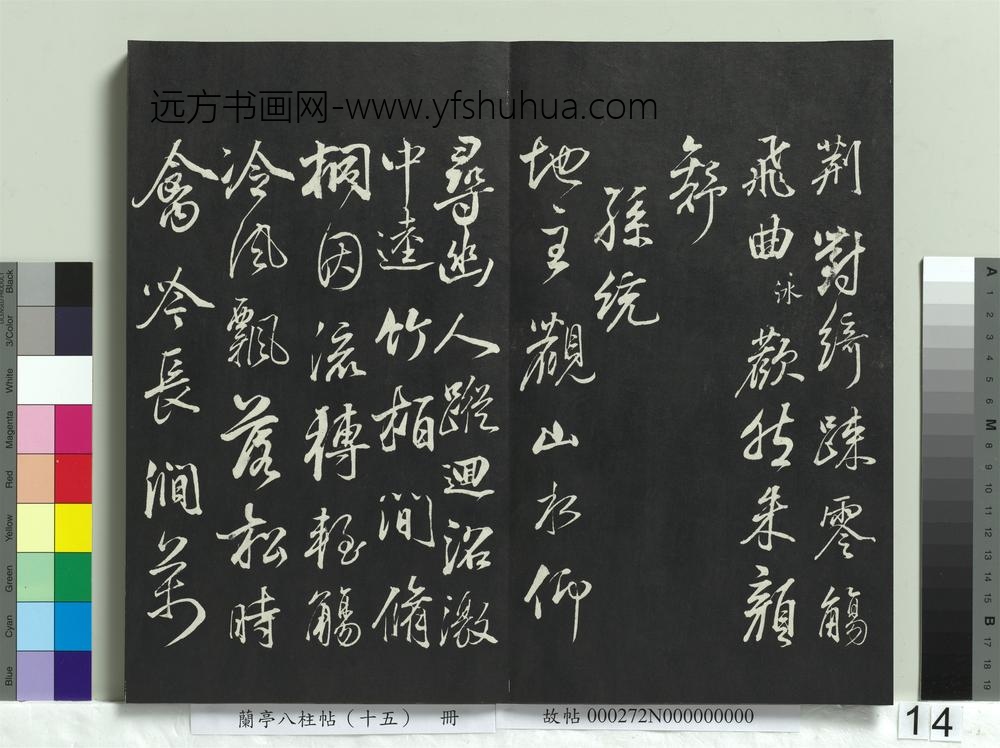 远方书画网-www.yfshuhua.com
荊對綺踈零觴
飛曲泳歡然朱顏
舒
孫統
地主觀山水仰
尋幽人蹤迴沼激
中逵竹栢間脩
桐因流轉輕觴
冷風飄落松時
禽吟長澗萬
蘭亭八柱帖（十五） 冊
故帖 000272N000000000
14
Black
3/Color
White
Magenta
Red
Yellow
Green
Cyan
Blue
A
1
2
3
4
5
6
M
8
9
10
11
12
13
14
15
B
17
18
19